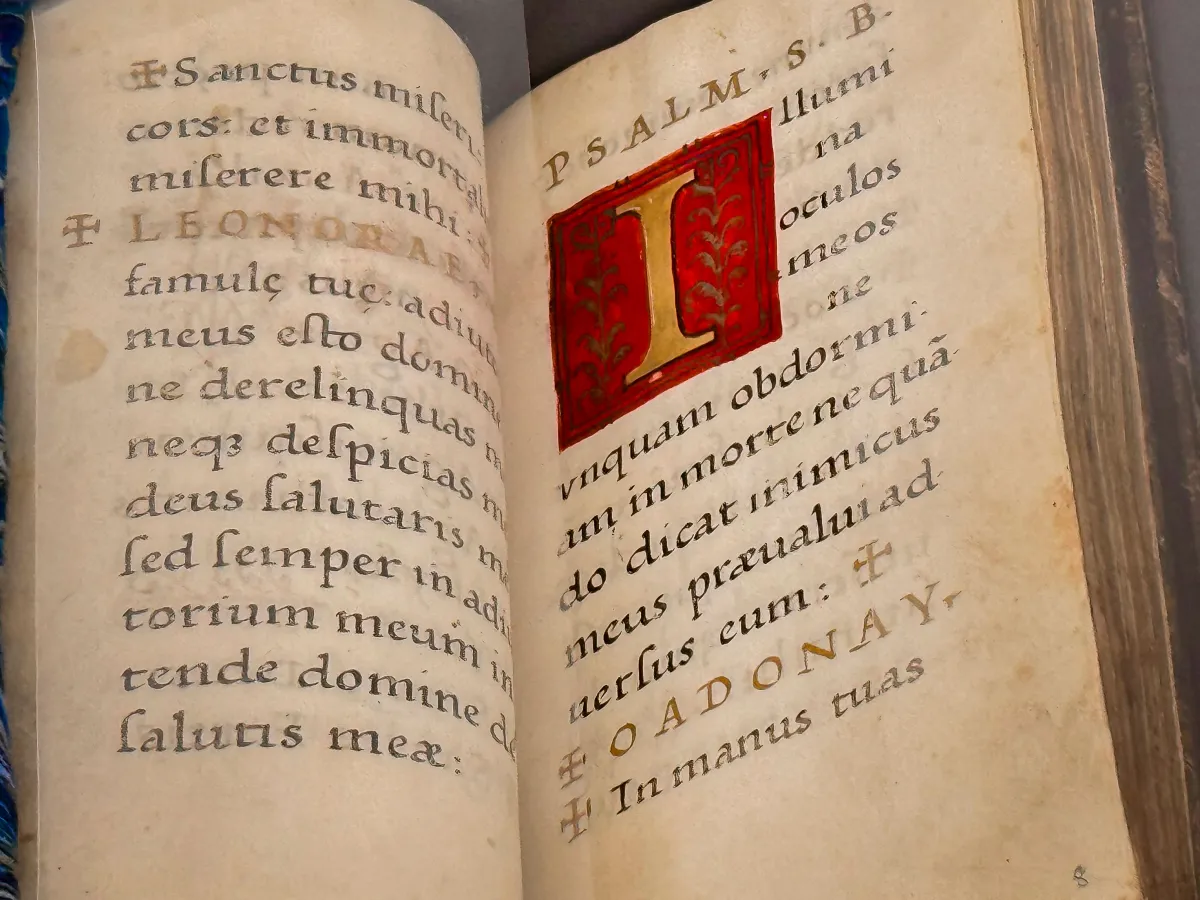 ✠ Sanctus miſeri
cors: et immortal
miſerere mihi:
✠ LEONORAE
famulę tuę: adiut
meus eſto domin
ne derelinquas
neqꝫ deſpicias
deus ſalutaris
ſed ſemper in adiu
torium meum in
tende domine
ſalutis meæ:
PSALM. S. B.
Illumi
na
oculos
meos
ne
vnquam obdormi
am in morte ne quã
do dicat inimicus
meus præualui ad
uerſus eum: ✠
✠ O ADONAY,
✠ In manus tuas
8